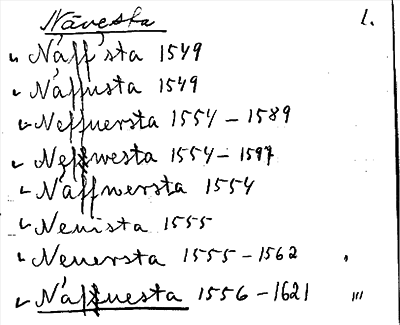 Näveska 1.
Näff'sta 1549
Näffusta 1549
Neffuersta 1554 – 1589
Neffwesta 1554 – 1597
Näffwersta 1554
Neuista 1555
Neuersta 1555 – 1562
Näffuesta 1556 – 1621 III